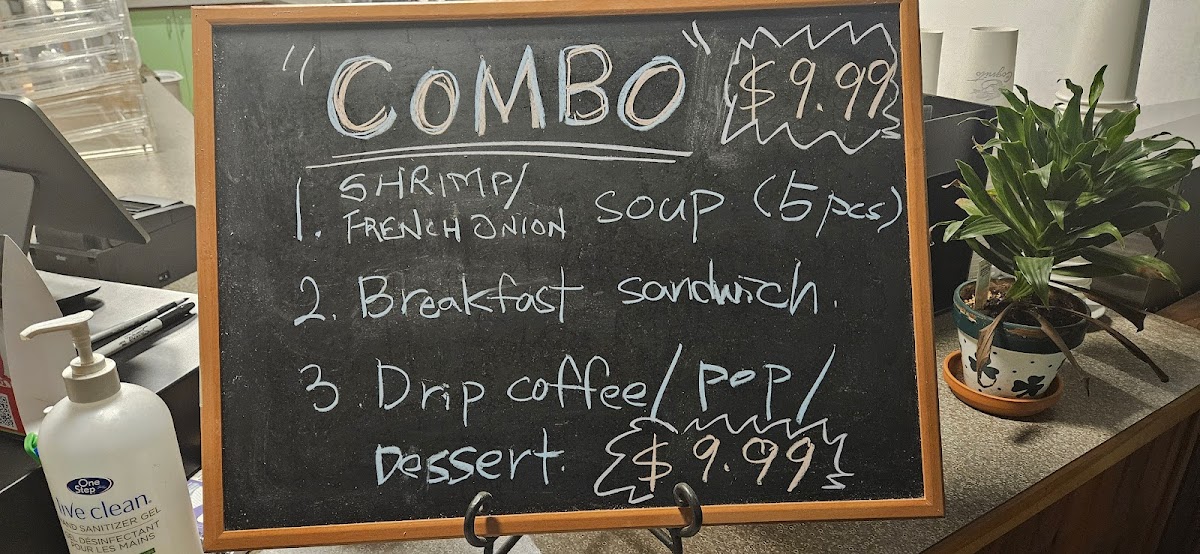 "COMBO" $9.99
1. SHRIMP/
FRENCH ONION soup (5pcs)
2. Breakfast sandwich.
3. Drip coffee/pop/
Dessert. $9.99
One
Step
live clean.
HAND SANITIZER GEL
GEL DÉSINFECTANT
POUR LES MAINS